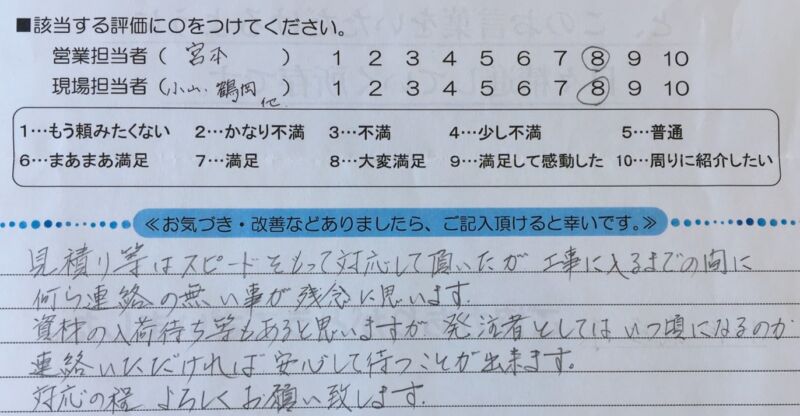 ■該当する評価に○をつけてください。
営業担当者（ 宮本 ） 1 2 3 4 5 6 7 8 9 10
現場担当者（小山、鶴岡 他） 1 2 3 4 5 6 7 8 9 10
1…もう頼みたくない 2…かなり不満 3…不満 4…少し不満 5…普通
6…まあまあ満足 7…満足 8…大変満足 9…満足して感動した 10…周りに紹介したい
≪お気づき・改善などありましたら、ご記入頂けると幸いです。≫
見積り等はスピードをもって対応して頂いたが 工事に入るまでの間に
何ら連絡の無い事が残念に思います.
資材の入荷待ち等もあると思いますが、発注者としてはいつ頃になるのか
連絡いただければ 安心して待つことが出来ます。
対応の程 よろしくお願い致します.